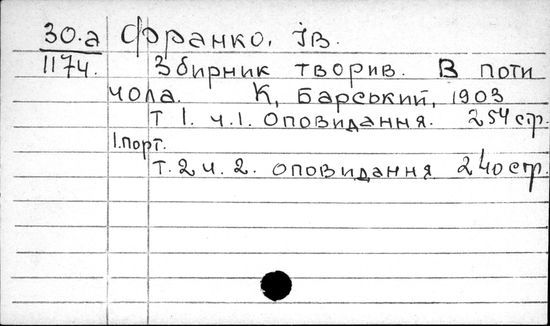 30.а Франко, Ів.
1174. Збирник творив. В поти
чола. К, Барський, 1903
т 1. ч.1. оповидання. 254 стр.
1.порт.
т.2 ч. 2. оповидання 240 стр.